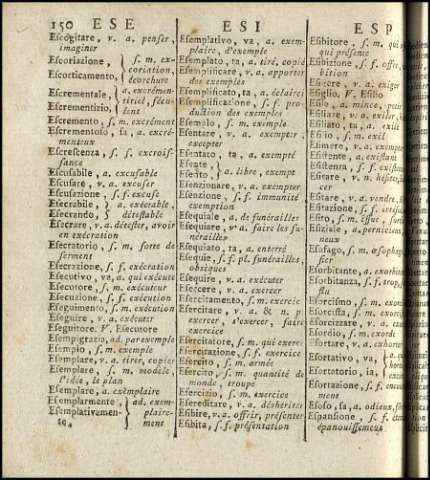 150 ESE ESI ESP
Escogitare, v. a. penser,
imaginer
Escoriazione, } s. m. ex-
Escorticamento, } coriation,
écorchure
Escrementale, } a. excrémen-
Escrementizio, } titiel, fécu-
lent
Escremento, s. m. excrément
Escrementoso, sa, a. excré-
menteux
Escrescenza, s. f. excrois-
sance
Escusabile, a. excusable
Escusare, v. a. excuser
Escusazione, s. f. excuse
Esecrabile, } a. exécrable,
Esecrando, } détestable
Esecrare, v. a. détester, avoir
en exécration
Esecratorio, s. m. sorte de
serment
Esecrazione, s. f. exécration
Esecutivo, va, a. qui exécute
Esecutore, s. m. exécuteur
Esecuzione, s. f. exécution
Eseguimento, s. m. exécution
Eseguire, v. a. exécuter
Eseguitore. V. Esecutore
Esempigrazia, ad. par exemple
Esempio, s. m. exemple
Esemplare, v. a. tirer, copier
Esemplare, s. m. modele,
l'idée, le plan
Esemplare, a. exemplaire
Esemplarmente, } ad. exem-
Esemplativamen- } plaire-
te, } ment
Esemplativo, va, a. exem-
plaire, d'exemple
Esemplato, ta, a. tiré, copié
Esemplificare, v. a. apporter
des exemples
Esemplificato, ta, a. éclairci
Esemplificazione, s. f. pro-
duction des exemples
Esemplo, s. m. exemple
Esentare, v. a. exempter,
excepter
Esentato, ta, a. exempté
Esente, } a. libre, exempt
Esento, }
Esenzionare, v. a. exempter
Esenzione, s. f. immunité,
exemption
Esequiale, a. de funérailles
Esequiare, v. a. faire les fu-
nérailles
Esequiato, ta, a. enterré
Esequie, s. f. pl. funérailles,
obséques
Esequire, v. a. exécuter
Esercere, v. a. exercer
Esercitamento, s. m. exercice
Esercitare, v. a. & n. p.
exercer, s'exercer, faire
exercice
Esercitatore, s. m. qui exerce
Esercitazione, s. f. exercice
Esercito, s. m. armée
Esercito, s. m. quantité de
monde, troupe
Esercizio, s. m. exercice
Esereditare, v. a. déshériter
Esibire, v. a. offrir, présenter
Esibita, s. f. présentation
Esibitore, s. m. qui
qui présente
Esibizione, s. f. offre,
bition
Esigere, v. a. exiger
Esiglio, V. Esilio
Esile, a. mince, petit
Esiliare, v. a. exiler,
Esiliato, ta, a. exilé
Esilio, s. m. exil
Esimere, v. a. exempter
Esistente, a. existant
Esistenza, s. f. existen
Esitare, v. n. hésiter,
cer
Esitare, v. a. vendre,
Esitazione, s. f. irrésol
Esito, s. m. issue,
Esiziale, a. pernicieux,
neux
Esofago, s. m. œsophage
sier
Esorbitante, a. exorbitan
Esorbitanza, s. f. trop,
flu
Esorcismo, s. m. exor
Esorcista, s. m. exorci
Esorcizzare, v. a. exor
Esordio, s. m. exorde
Esortare, v. a. exhorter
Esortativo, va, }
Esortatorio, ia, }
Esortazione, s. f. exhor
Esoso, sa, a. odieux,
Espansione, s. f.
épanouissement